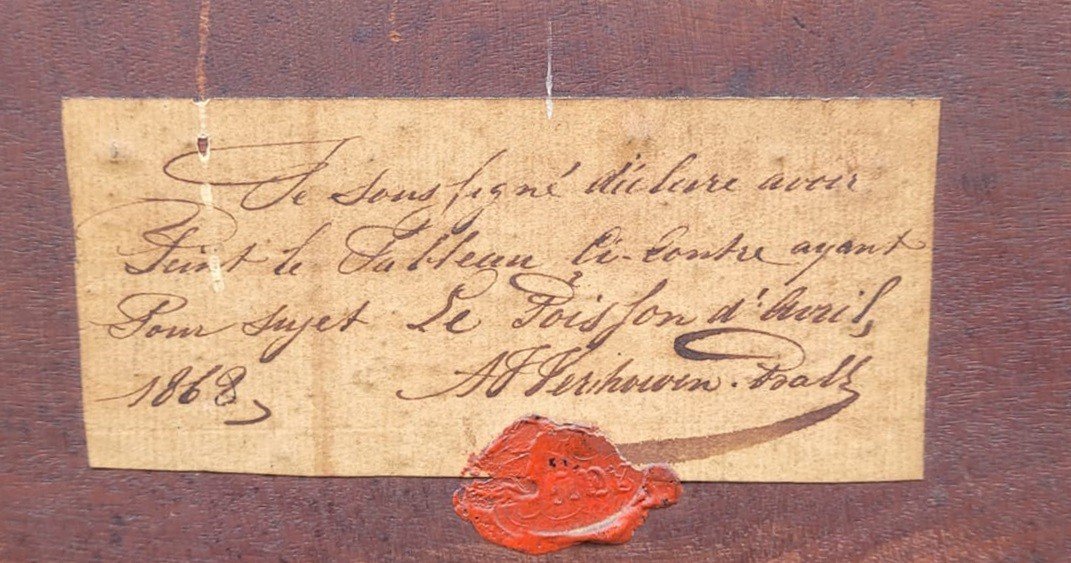 Je soussigné déclare avoir
Peint le Tableau Ci-Contre ayant
Pour sujet Le Poisson d'Avril,
1868, AJ Verhoeven-Ball